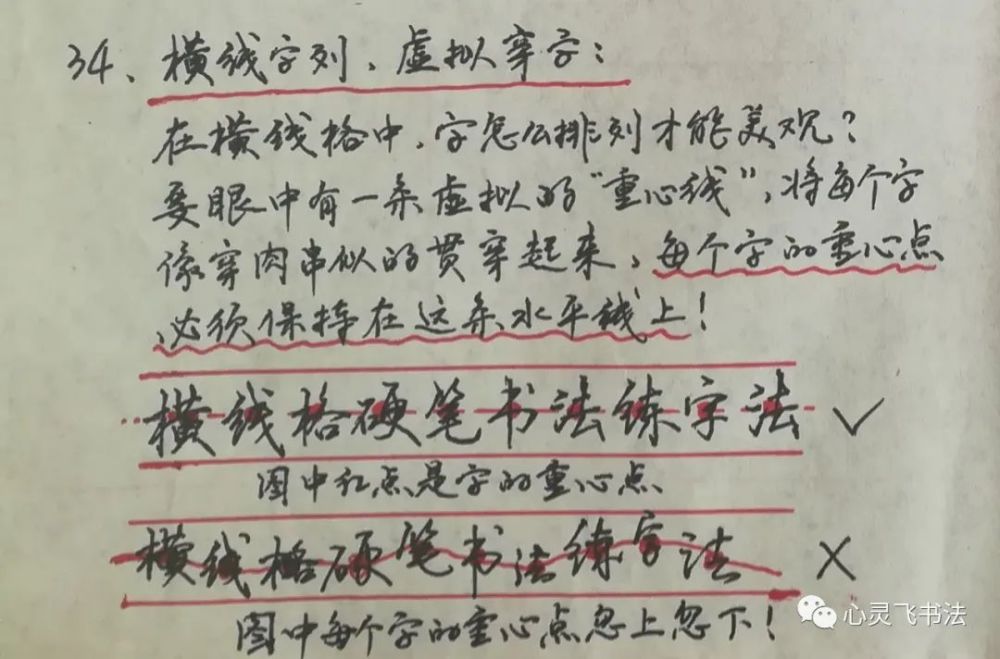 34、横线字列、虚拟穿字：
在横线格中，字怎么排列才能美观？
要眼中有一条虚拟的“重心线”，将每个字
像穿肉串似的贯穿起来，每个字的重心点
必须保持在这条水平线上！
横线格硬笔书法练字法 ✓
图中红点是字的重心点、
横线格硬笔书法练字法 ×
图中每个字的重心点忽上忽下！
心灵飞书法